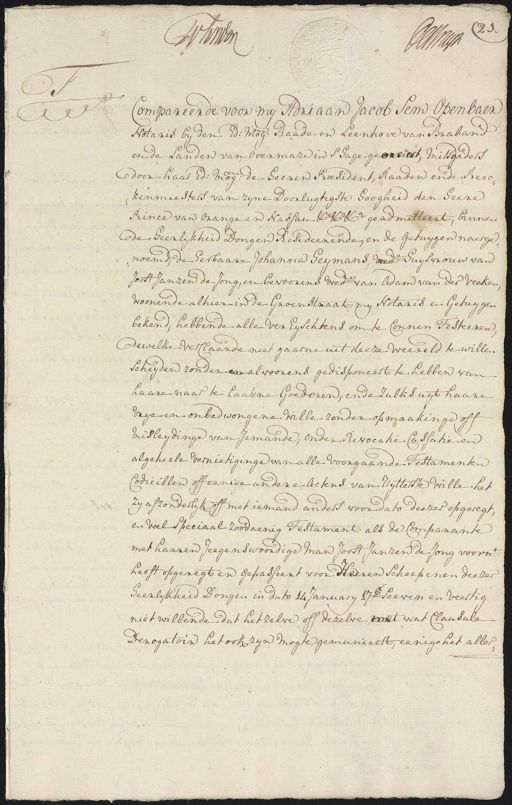 23.
Compareerde voor my Adriaan Jacob Sem Openbaer
Notaris by den Ed: Mog: Raade en Leenhove van Braband
en de Landen van Overmaze in S'Hage geadmitteert, Mitsgaders
door haar Ed: Mog: de Heeren President, Raaden en de Reec-
kenmeesters van zyne Doorlugtigste Hoogheid den Heere
Prince van Orange en Nassau &c &c &c geadmitteert, binnen
de Heerlykheid Dongen Resideerende, en de Getuygen naerge-
noemd, de Eerbaare Johanna Heymans, Huysvrouw van
Joost Janzen de Jong, en bevoorens Wede: van Adam van der Veeken,
woonende alhier in de Groenstraat my Notaris en Getuygen
bekend, hebbende alle Vereyschtens om te Connen Testeeren,
dewelke Verclaarde niet gaarne uit deeze Weereld te willen
Scheyden zonder alvoorens gedisponeert te hebben van
haare naar te laatene Goederen, ende zulks uyt haare
vrye en onbedwongene wille zonder opmaakinge off
Misleydinge van Jemande, onder Revocatie Cassatie en
algeheele vernietiginge van alle voorgaande Testamenten
Codicillen off eenige andere Actens van Uytterste Wille het
zy afzonderlyk off met iemand anders voor dato deezer opgeregt,
en wel speciaal zoodaenig Testament als de Comparante
met haaren Jegenswoordige man Joost Janzen de Jong voornt:
heeft opgeregt en gepasseert voor Heeren Scheepenen deezer
Heerlykheid Dongen in dato 14 January 17C Seeven en Veertig
niet willende dat het zelve off dezelve met wat Clausule
Derogatoir het ook zyn mogte gemunieert, eenigo het aller,